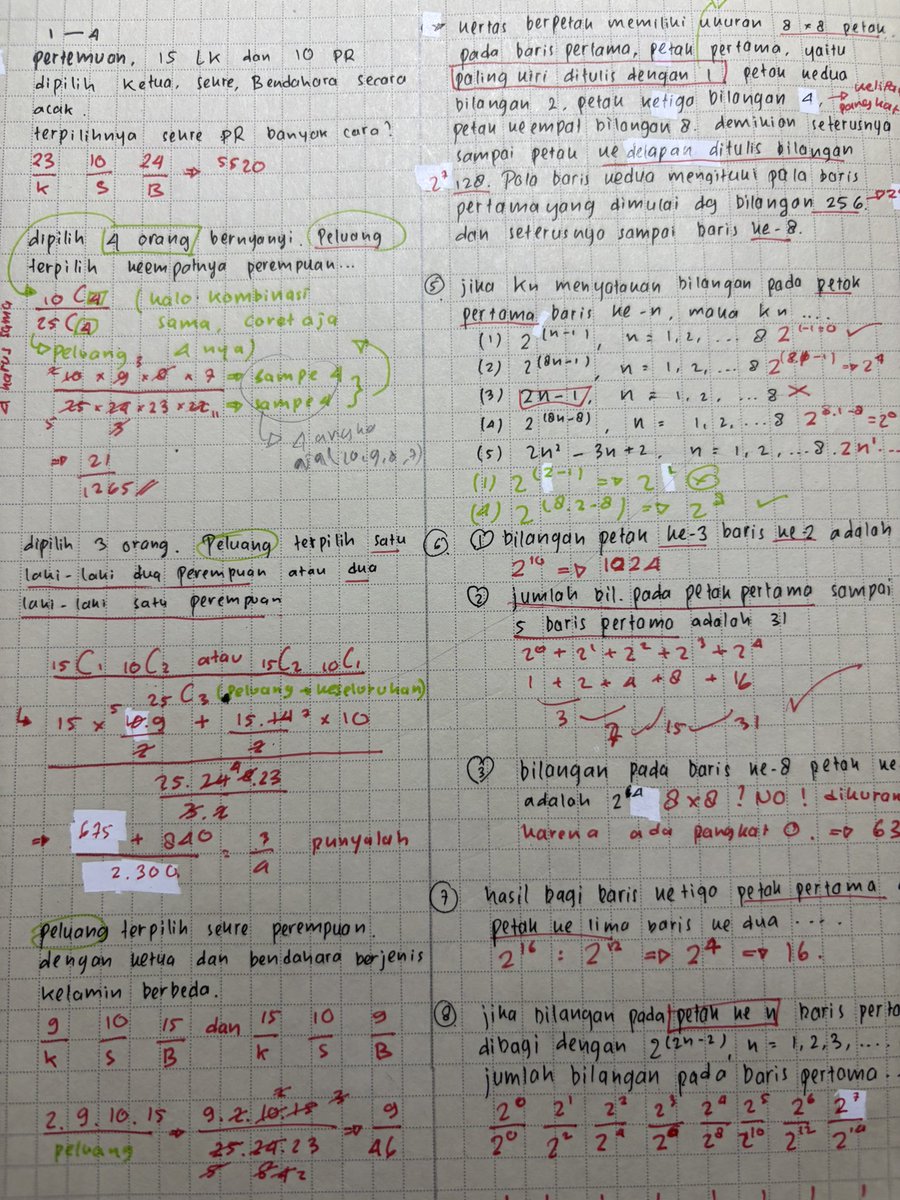 1 – 4
pertemuan, 15 LK dan 10 PR
dipilih ketua, sekre, Bendahara secara
acak.
terpilihnya sekre PR banyak cara?
23/K 10/S 24/B ⇒ 5520
dipilih 4 orang bernyanyi. Peluang
terpilih keempatnya perempuan...
10 C 4 / 25 C 4 (kalo kombinasi
sama, coret aja
↳ peluang 4 nya)
harus sama
10 × 9 × 8 × 7 ⇒ sampe 4
25 × 24 × 23 × 22 ⇒ sampe 4
↳ 4 angka
(10, 9, 8, 7)
⇒ 21/1265
dipilih 3 orang. Peluang terpilih satu
laki-laki dua perempuan atau dua
laki-laki satu perempuan
15C1 10C2 atau 15C2 10C1
25 C3 (peluang keseluruhan)
15 × 10.9/2 + 15.14/2 × 10
25.24.23
3.2
⇒ 675 + 840 / 2.300 = 3/4 punyalah
peluang terpilih sekre perempuan.
dengan ketua dan bendahara berjenis
kelamin berbeda.
9/K 10/S 15/B dan 15/K 10/S 9/B
2.9.10.15/peluang ⇒ 9.2.10.15/25.24.23 ⇒ 9/46
kertas berpetak memiliki ukuran 8 × 8 petak
pada baris pertama, petak pertama, yaitu
paling kiri ditulis dengan 1 petak kedua
bilangan 2, petak ketiga bilangan 4,
petak keempat bilangan 8. demikian seterusnya
sampai petak ke delapan ditulis bilangan
2^7 128. Pola baris kedua mengikuti pola baris
pertama yang dimulai dg bilangan 256.
dan seterusnya sampai baris ke-8.
⑤ jika kn menyatakan bilangan pada petak
pertama baris ke-n, maka kn ....
(1) 2^(n-1), n = 1, 2, ... 8 2^(1-1=0) ✓
(2) 2^(8n-1), n = 1, 2, ... 8
(3) 2n-1, n = 1, 2, ... 8 ✗
(4) 2^(8n-8), n = 1, 2, ... 8 2^8.1-8 = 2^0
(5) 2n² – 3n + 2, n = 1, 2, ... 8.
(1) 2^(2-1) ⇒ 2^1 ⊗
(4) 2^(8.2-8) ⇒ 2^8 ✓
⑥ ① bilangan petak ke-3 baris ke-2 adalah
2^10 ⇒ 1024
② jumlah bil. pada petak pertama sampai
5 baris pertama adalah 31
2^0 + 2^1 + 2^2 + 2^3 + 2^4
1 + 2 + 4 + 8 + 16
3 7 15 31 ✓
③ bilangan pada baris ke-8 petak ke
adalah 2^64 8×8 ? NO !
karena ada pangkat 0. ⇒ 63
⑦ hasil bagi baris ketiga petak pertama
petak ke lima baris ke dua ....
2^16 : 2^12 ⇒ 2^4 ⇒ 16.
⑧ jika bilangan pada petak ke n baris
dibagi dengan 2^(2n-2), n = 1, 2, 3, ....
jumlah bilangan pada baris pertama..
2^0/2^0 2^1/2^2 2^2/2^4 2^3/2^6 2^4/2^8 2^5/2^10 2^6/2^12 2^7/2^14